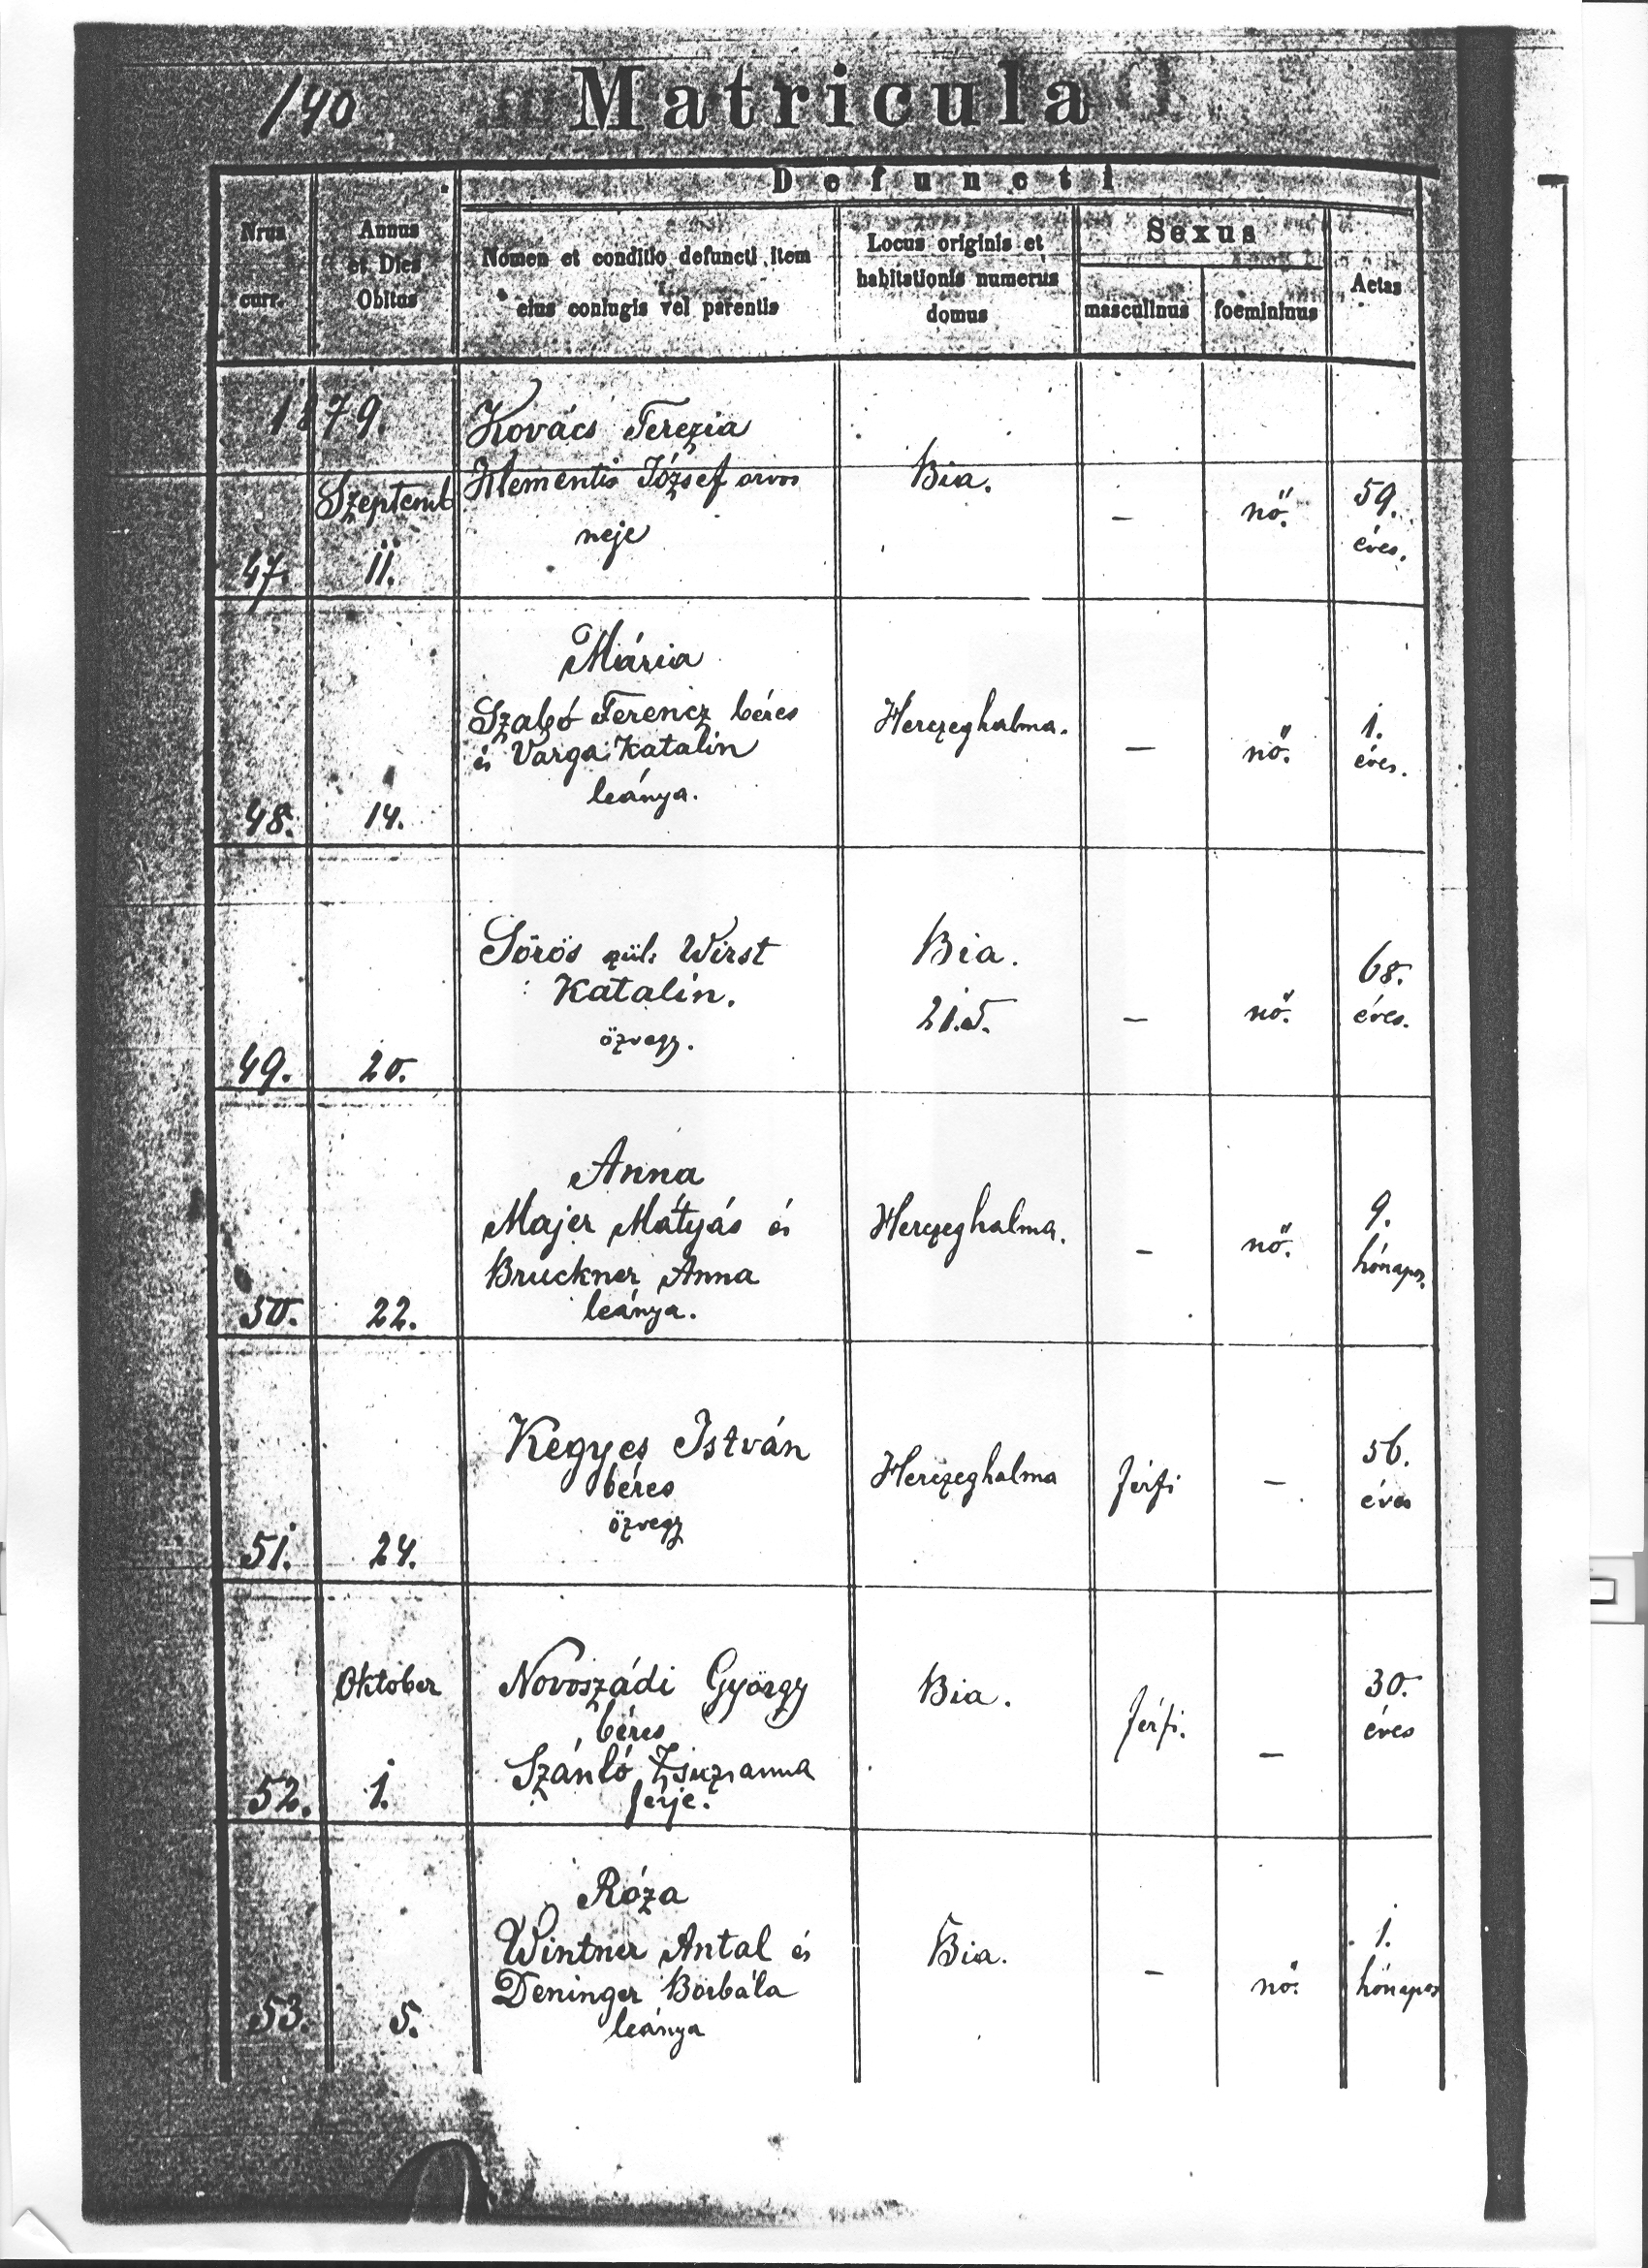 140
Matricula
Defuncti
Nrus curr.
Annus et Dies Obitus
Nomen et conditio defuncti, item eius coniugis vel parentis
Locus originis et habitationis numerus domus
Sexus
masculinus
foemininus
Aetas
1879.
Kovács Terezia
Szeptemb
Klementis József orvos
Bia.
neje
–
nő.
59.
éves.
47.
11.
Mária
Szabó Ferencz béres
és Varga Katalin
leánya.
Herczeghalma.
–
nő.
1.
éves.
48.
14.
Sörös szül: Wirst
Katalin.
özvegy.
Bia.
215.
–
nő.
68.
éves.
49.
20.
Anna
Majer Mátyás és
Bruckner Anna
leánya.
Herczeghalma.
–
nő.
9.
hónapos.
50.
22.
Kegyes István
béres
özvegy
Herczeghalma
férfi
–
56.
éves
51.
24.
Oktober
Novoszádi György
béres
Szántó Zsuzsanna
férje.
Bia.
férfi.
–
30.
éves
52.
1.
Róza
Wintner Antal és
Deninger Borbála
leánya
Bia.
–
nő.
1.
hónapos
53.
5.